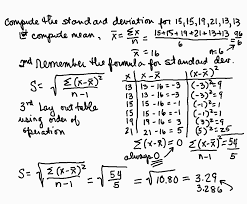 Compute the standard deviation for 15, 15, 19, 21, 13, 13
1st compute mean, x̄ = Σx/n
x̄ = (15+15+19+21+13+13)/6 = 96/6
n = 6
x̄ = 16
2nd Remember the formula for standard dev.
S = √(Σ(x-x̄)²/(n-1))
3rd Lay out table using order of operation
x | x - x̄ | (x-x̄)²
13 | 13-16 = -3 | (-3)² = 9
13 | 13-16 = -3 | (-3)² = 9
15 | 15-16 = -1 | (-1)² = 1
15 | 15-16 = -1 | (-1)² = 1
19 | 19-16 = 3 | (3)² = 9
21 | 21-16 = 5 | (5)² = 25
Σ(x-x̄) = 0
always 0
Σ(x-x̄)² = 54
n-1
5
S = √(Σ(x-x̄)²/(n-1)) = √(54/5) = √10.80 = 3.29
3.286